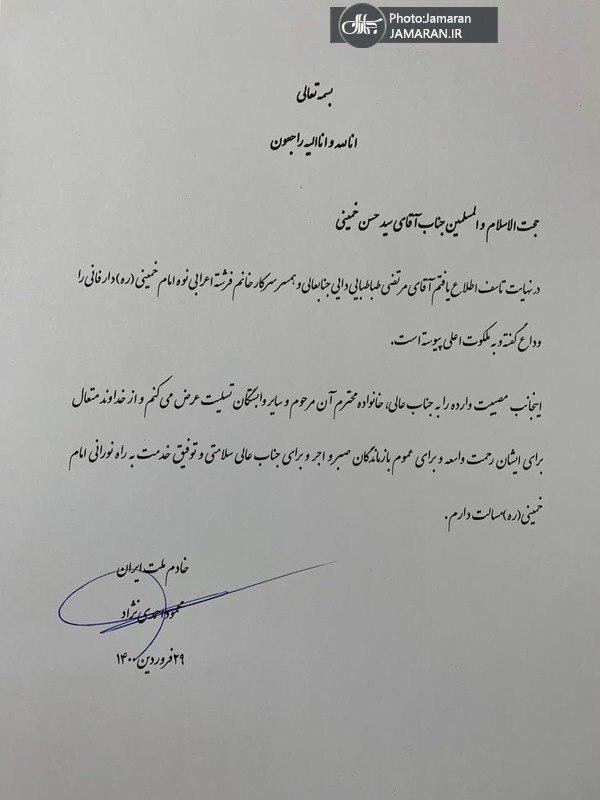 Photo:Jamaran
JAMARAN.IR
جماران
بسمه تعالی
انا لله و انا الیه راجعون
حجت الاسلام و المسلمین جناب آقای سید حسن خمینی
در نهایت تاسف اطلاع یافتم آقای مرتضی طباطبایی دایی جنابعالی و همسر سرکار خانم فرشته اعرابی نوه امام خمینی (ره) دار فانی را
وداع گفته و به ملکوت اعلی پیوسته است.
اینجانب مصیبت وارده را به جناب عالی، خانواده محترم آن مرحوم و سایر وابستگان تسلیت عرض می کنم و از خداوند متعال
برای ایشان رحمت واسعه و برای عموم بازماندگان صبر و اجر و برای جناب عالی سلامتی و توفیق خدمت به راه نورانی امام
خمینی (ره) مسالت دارم.
خادم ملت ایران
محمود احمدی نژاد
۲۹ فروردین ۱۴۰۰